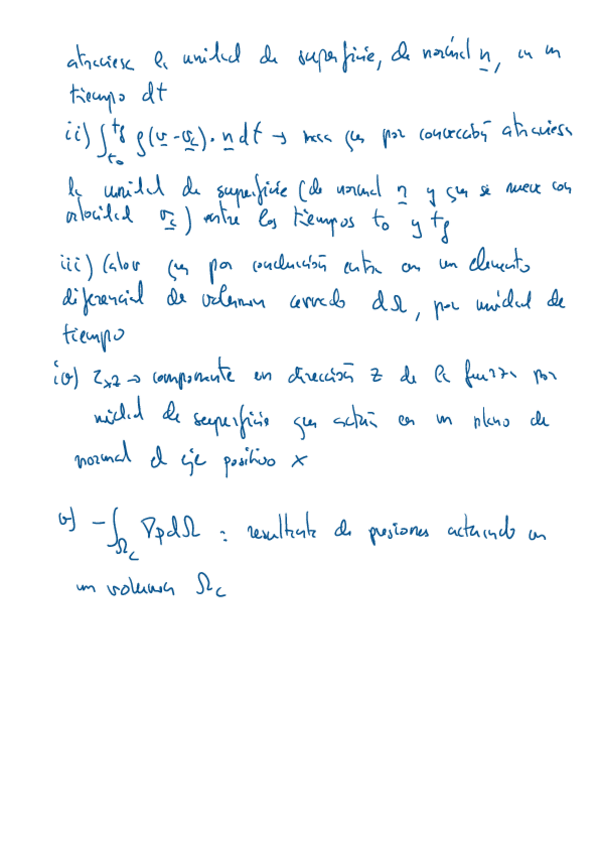 atraviesa la unidad de superficie, de normal n, en un
tiempo dt
ii) ∫_{t₀}^{t_f} ρ(v - v_c) · n dt → masa que por convección atraviesa
la unidad de superficie (de normal n y que se mueve con
velocidad v_c) entre los tiempos t₀ y t_f
iii) Calor que por conducción entra en un elemento
diferencial de volumen cerrado dΩ, por unidad de
tiempo
iv) τ_xz → componente en dirección z de la fuerza por
unidad de superficie que actúa en un plano de
normal el eje positivo x
v) - ∫_{Ω_c} ∇p dΩ : resultante de presiones actuando en
un volumen Ω_c